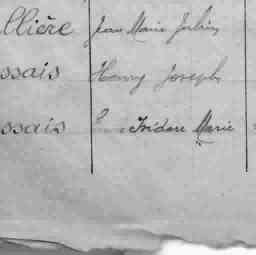 llière Jean Marie Julien
ssais Henry Joseph
ssais Isidore Marie